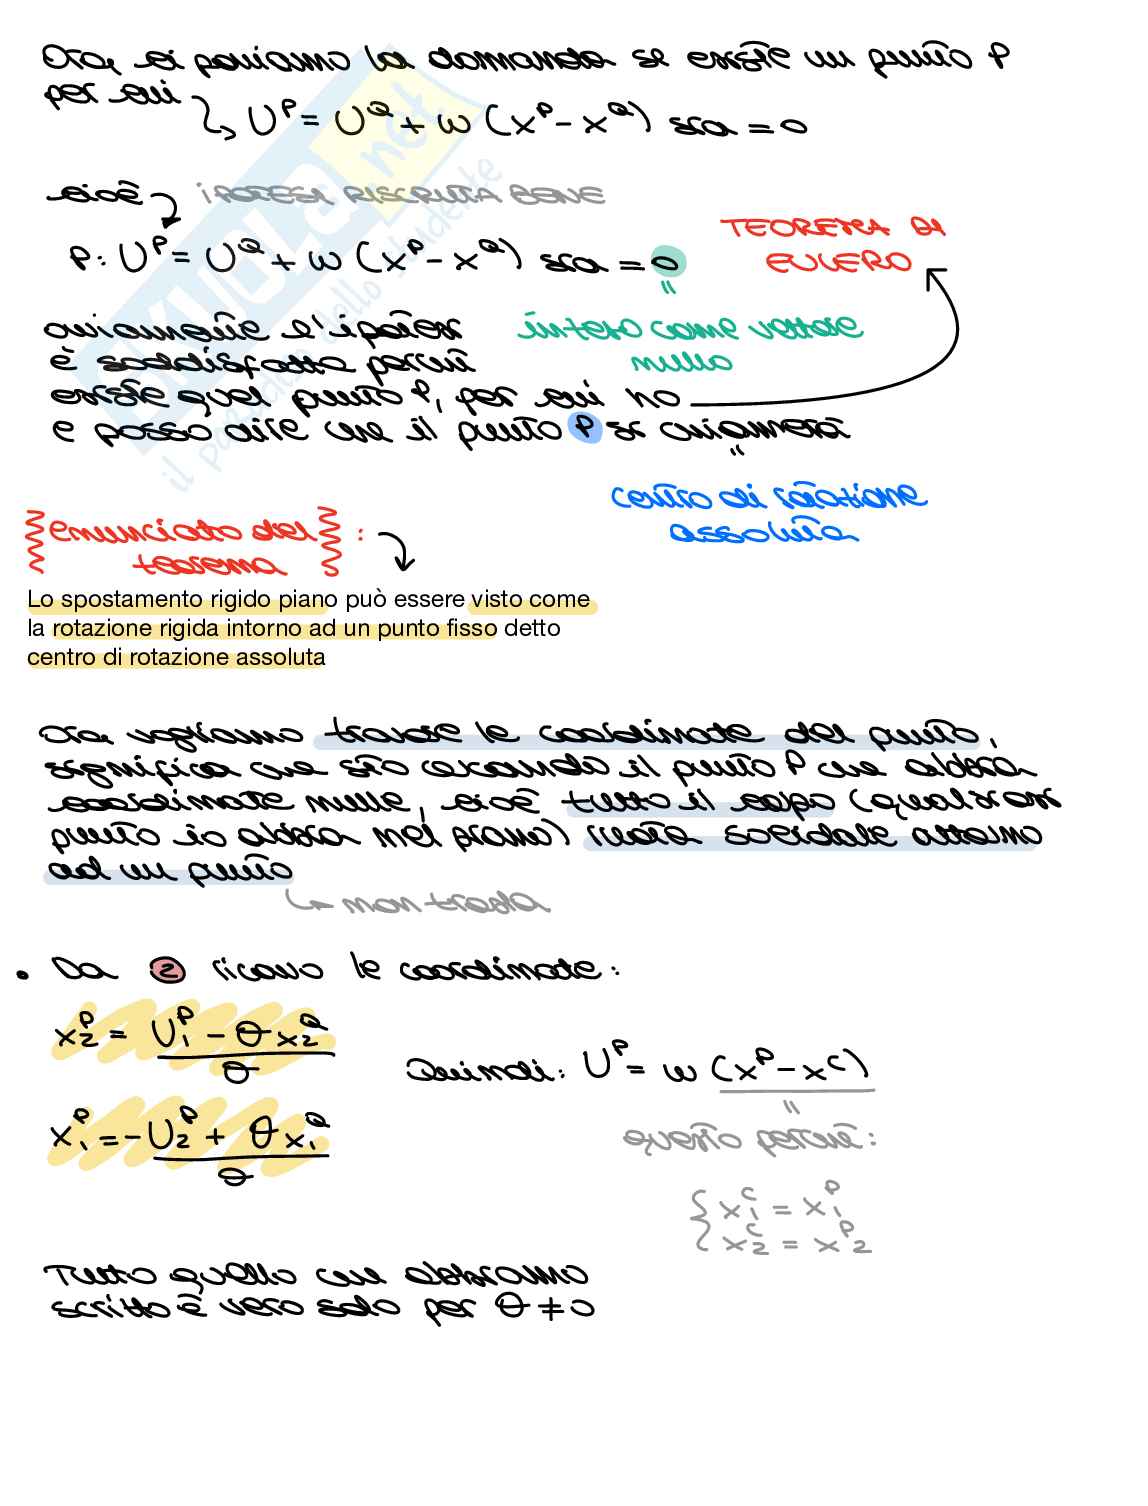 Ora, ci poniamo la domanda se esiste un punto P
per cui
U^P = U^Q + W (x^P - x^Q) sia = 0
cioè
iPOTESI RISCRITTA BENE
P: U^P = U^Q + W (x^P - x^Q) sia = 0
TEOREMA DI
EULERO
"
ovviamente l'ipotesi
è soddisfatta perché
esiste quel punto P, per cui ho
e posso dire che il punto P si chiamerà
inteso come vettore
nullo
"
centro di rotazione
assoluta
enunciato del
teorema
:
Lo spostamento rigido piano può essere visto come
la rotazione rigida intorno ad un punto fisso detto
centro di rotazione assoluta
Ora, vogliamo trovare le coordinate del punto,
significa che sto cercando il punto P che abbia
coordinate nulle, cioè tutto il corpo (qualsiasi
punto io abbia nel piano) ruota solidale attorno
ad un punto
non trasla
• Da 2 ricavo le coordinate:
x_2^P = (U_1^P - θ x_2^Q) / θ
x_1^P = (-U_2^P + θ x_1^Q) / θ
Quindi: U^P = W (x^P - x^C)
"
questo perché:
{ x_1^C = x_1^P
x_2^C = x_2^P
Tutto quello che abbiamo
scritto è vero solo per θ ≠ 0
SKUOLA.net
il paradiso dello studente